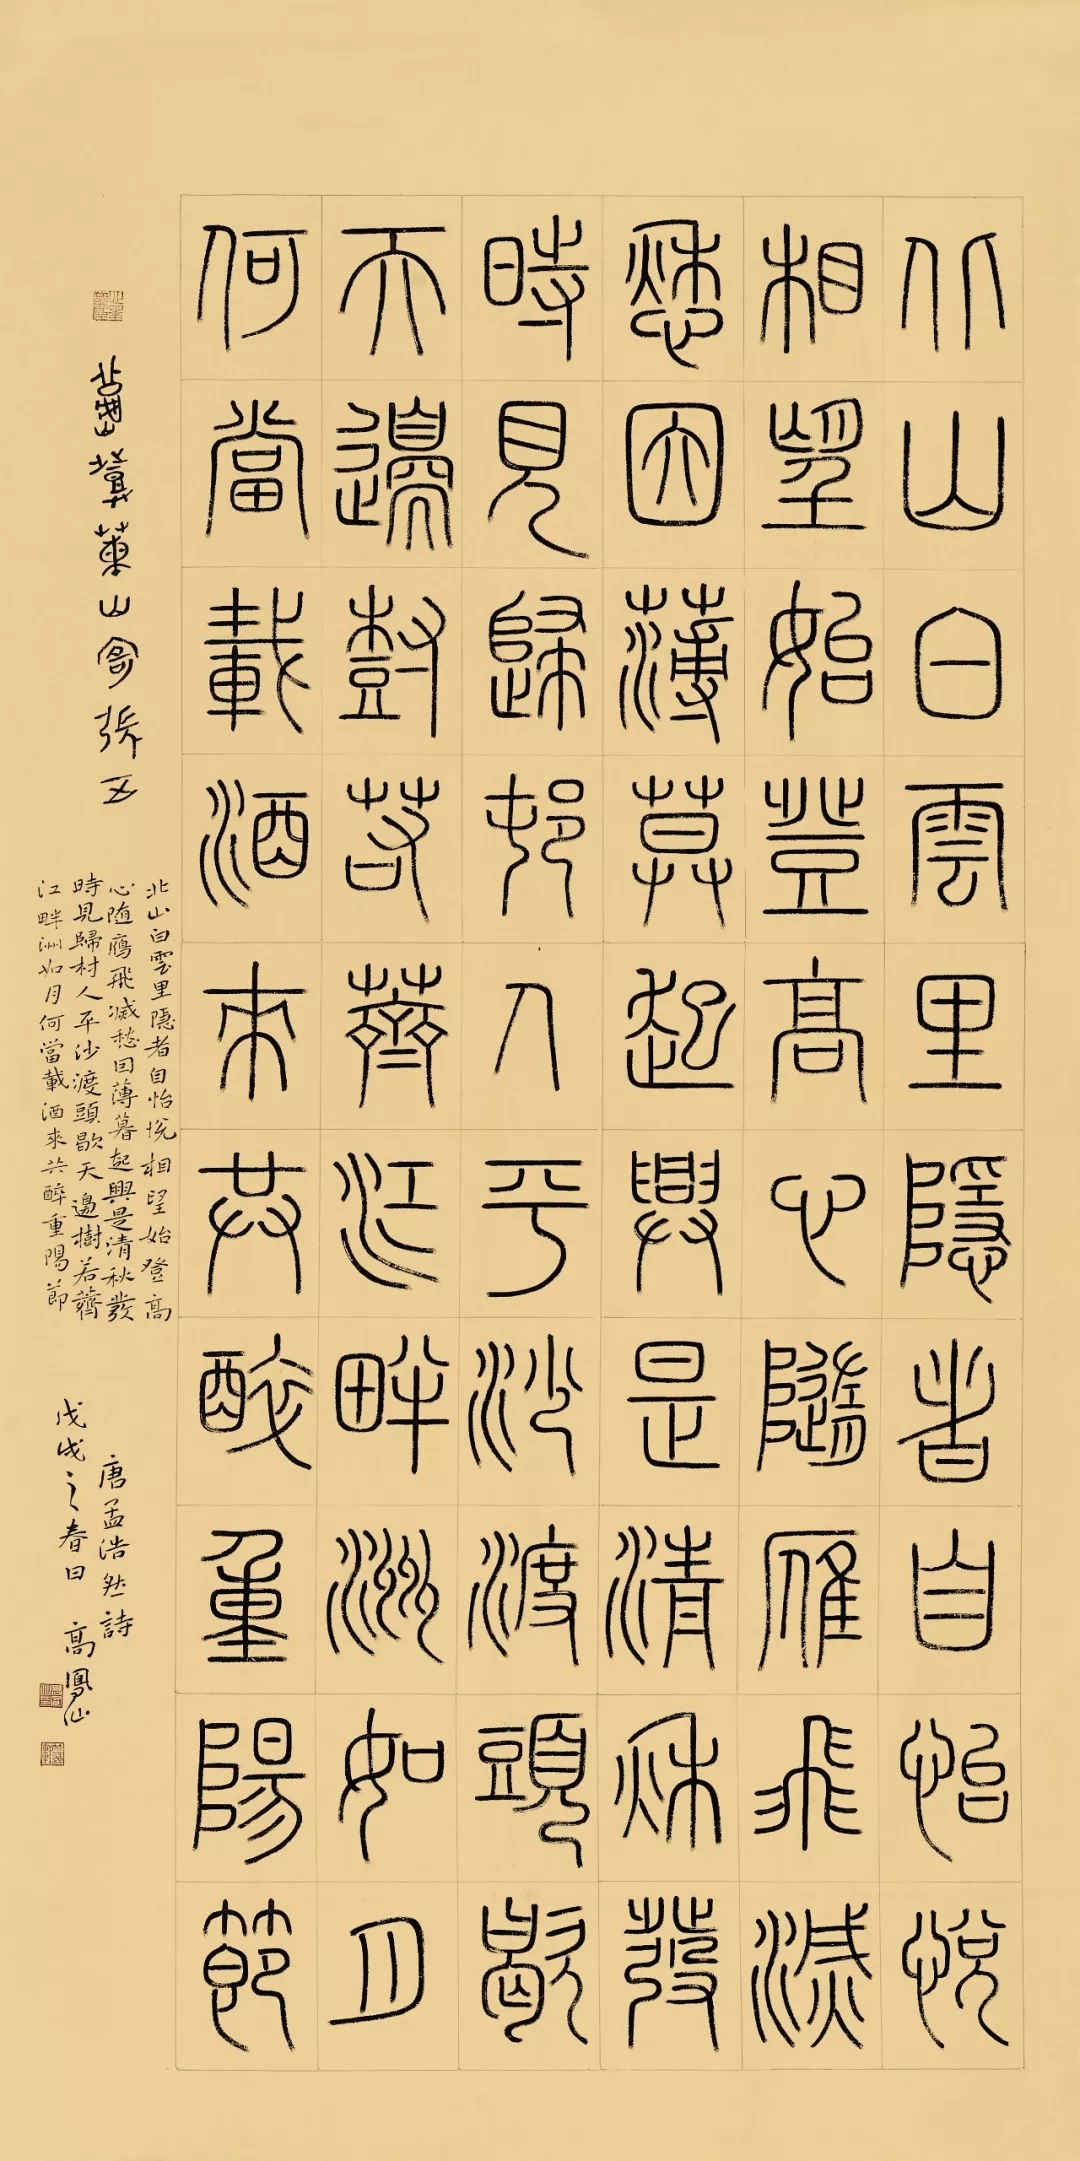 北山白雲里隱者自怡悅
相望始登高心隨雁飛滅
愁因薄莫起興是清秋發
時見歸邨人平沙渡頭歇
天邊樹若薺江畔洲如月
何當載酒來共醉重陽節
登蘭山張五
北山白雲里隱者自怡悅相望始登高
心隨鴈飛滅愁因薄暮起興是清秋發
時見歸村人平沙渡頭歇天邊樹若薺
江畔洲如月何當載酒來共醉重陽節
唐孟浩然詩
戊戌之春日 高鳳仙